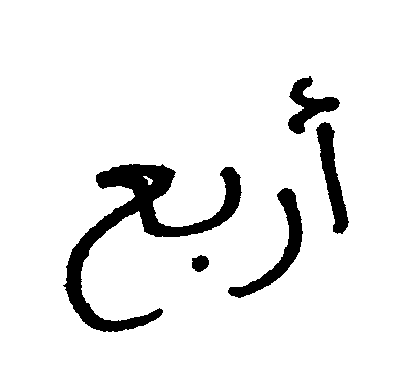 أربع